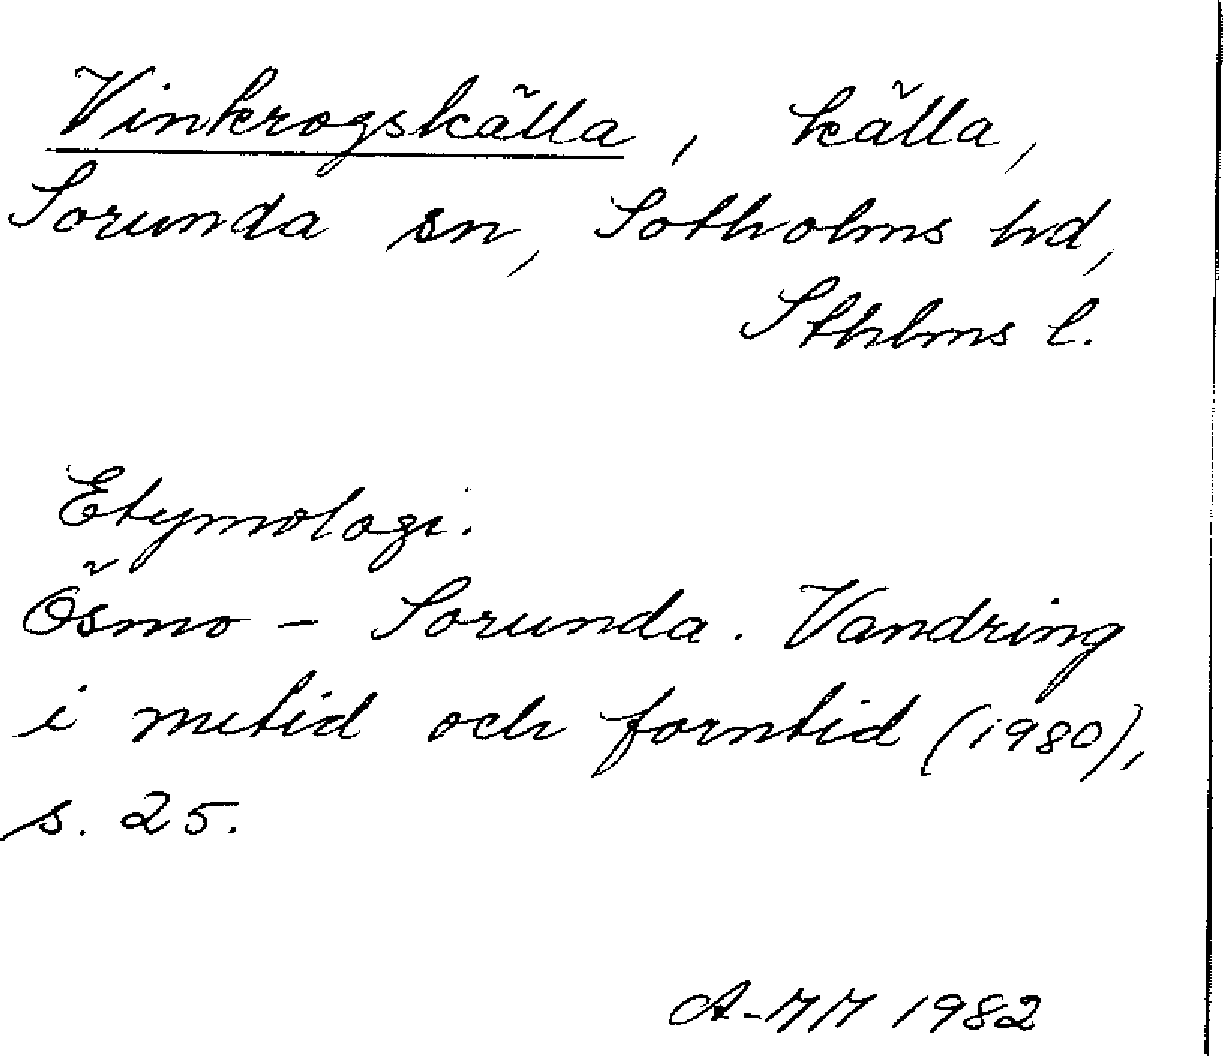 Vinkrogskälla, källa,
Sorunda sn, Sotholms hd,
Sthlms l.
Etymologi.
Ösmo - Sorunda. Vandring
i nutid och forntid (1980),
s. 25.
A-MM 1982